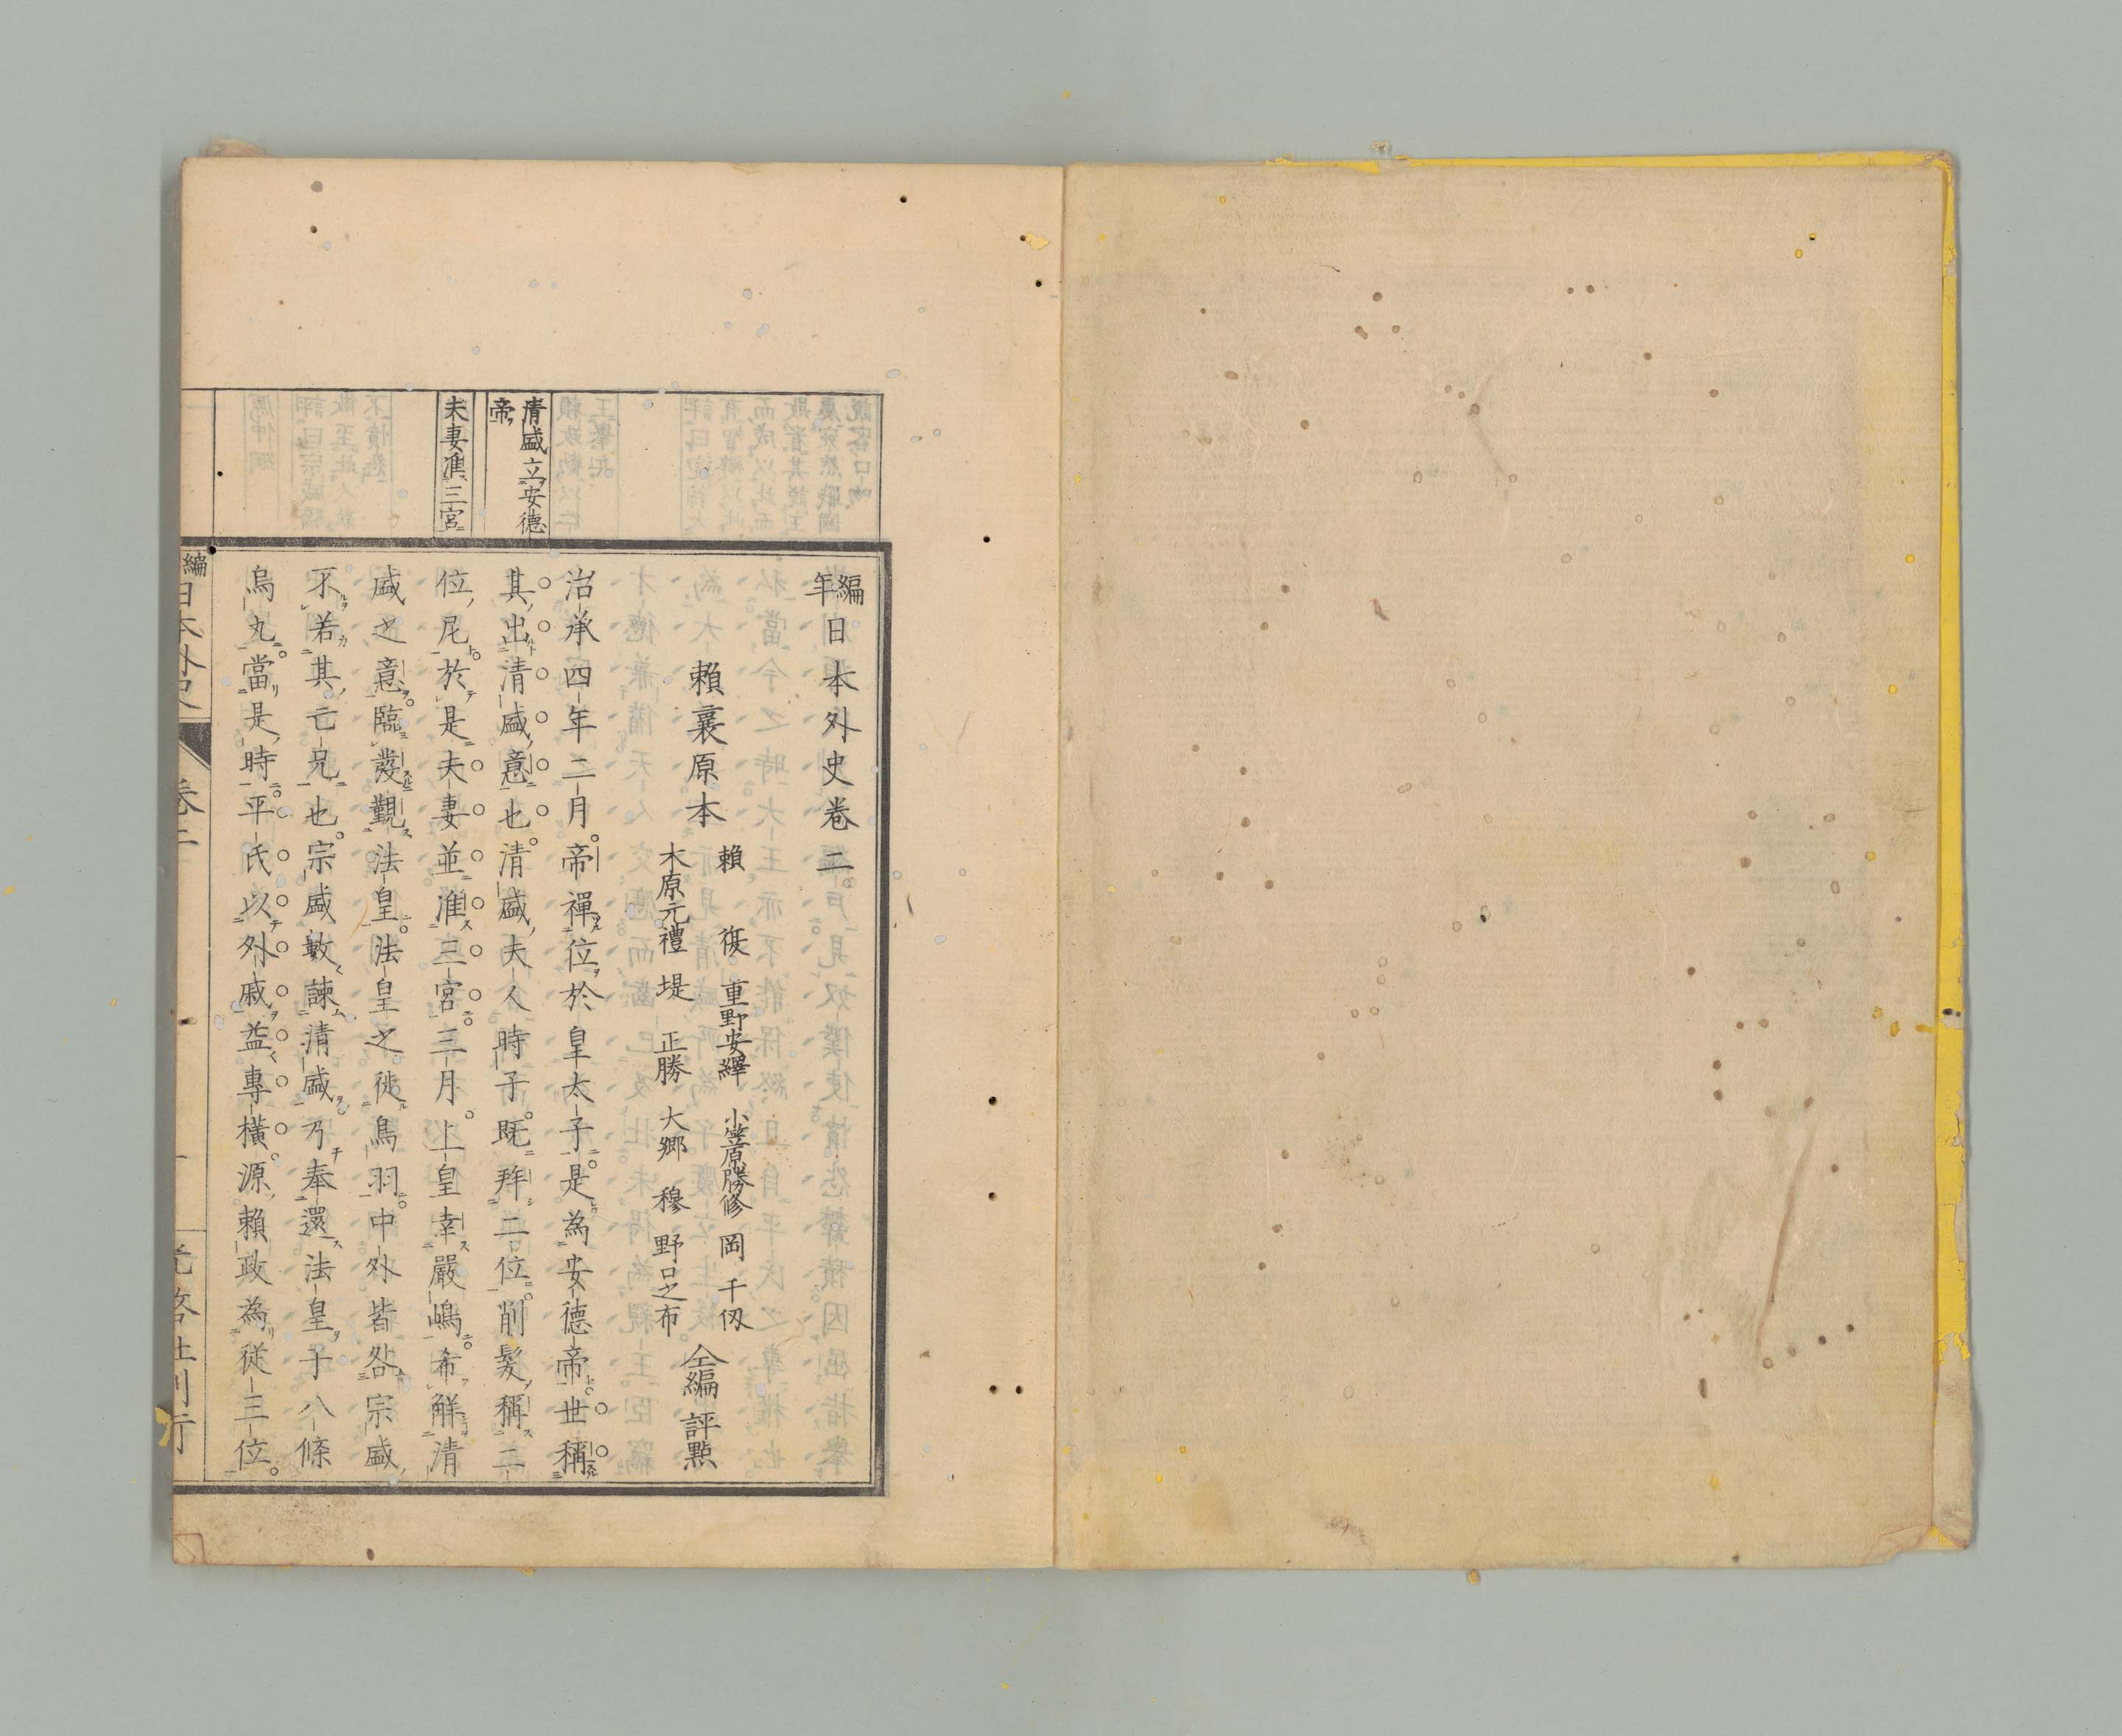 編年日本外史卷二
賴襄原本
賴復 重野安繹 小笠原勝修 岡千仭
木原元禮 堤正勝 大郷穆 野口之布
仝編 評點
治承四年二月。帝禪位於皇太子。是為安德帝。世稱
其出清盛意也。清盛夫人時子。既拜二位。削髮稱二
位尼。於是夫妻並准三宮。三月。上皇幸嚴嶋。希解清
盛之意。臨發覲法皇。法皇之徙鳥羽。中外皆咎宗盛
不若其亡兄也。宗盛數諫清盛。乃奉還法皇于八條
烏丸。當是時。平氏以外戚益專橫。源賴政為從三位。
清盛立安德
帝
夫妻准三宮
編
日本外史
卷二